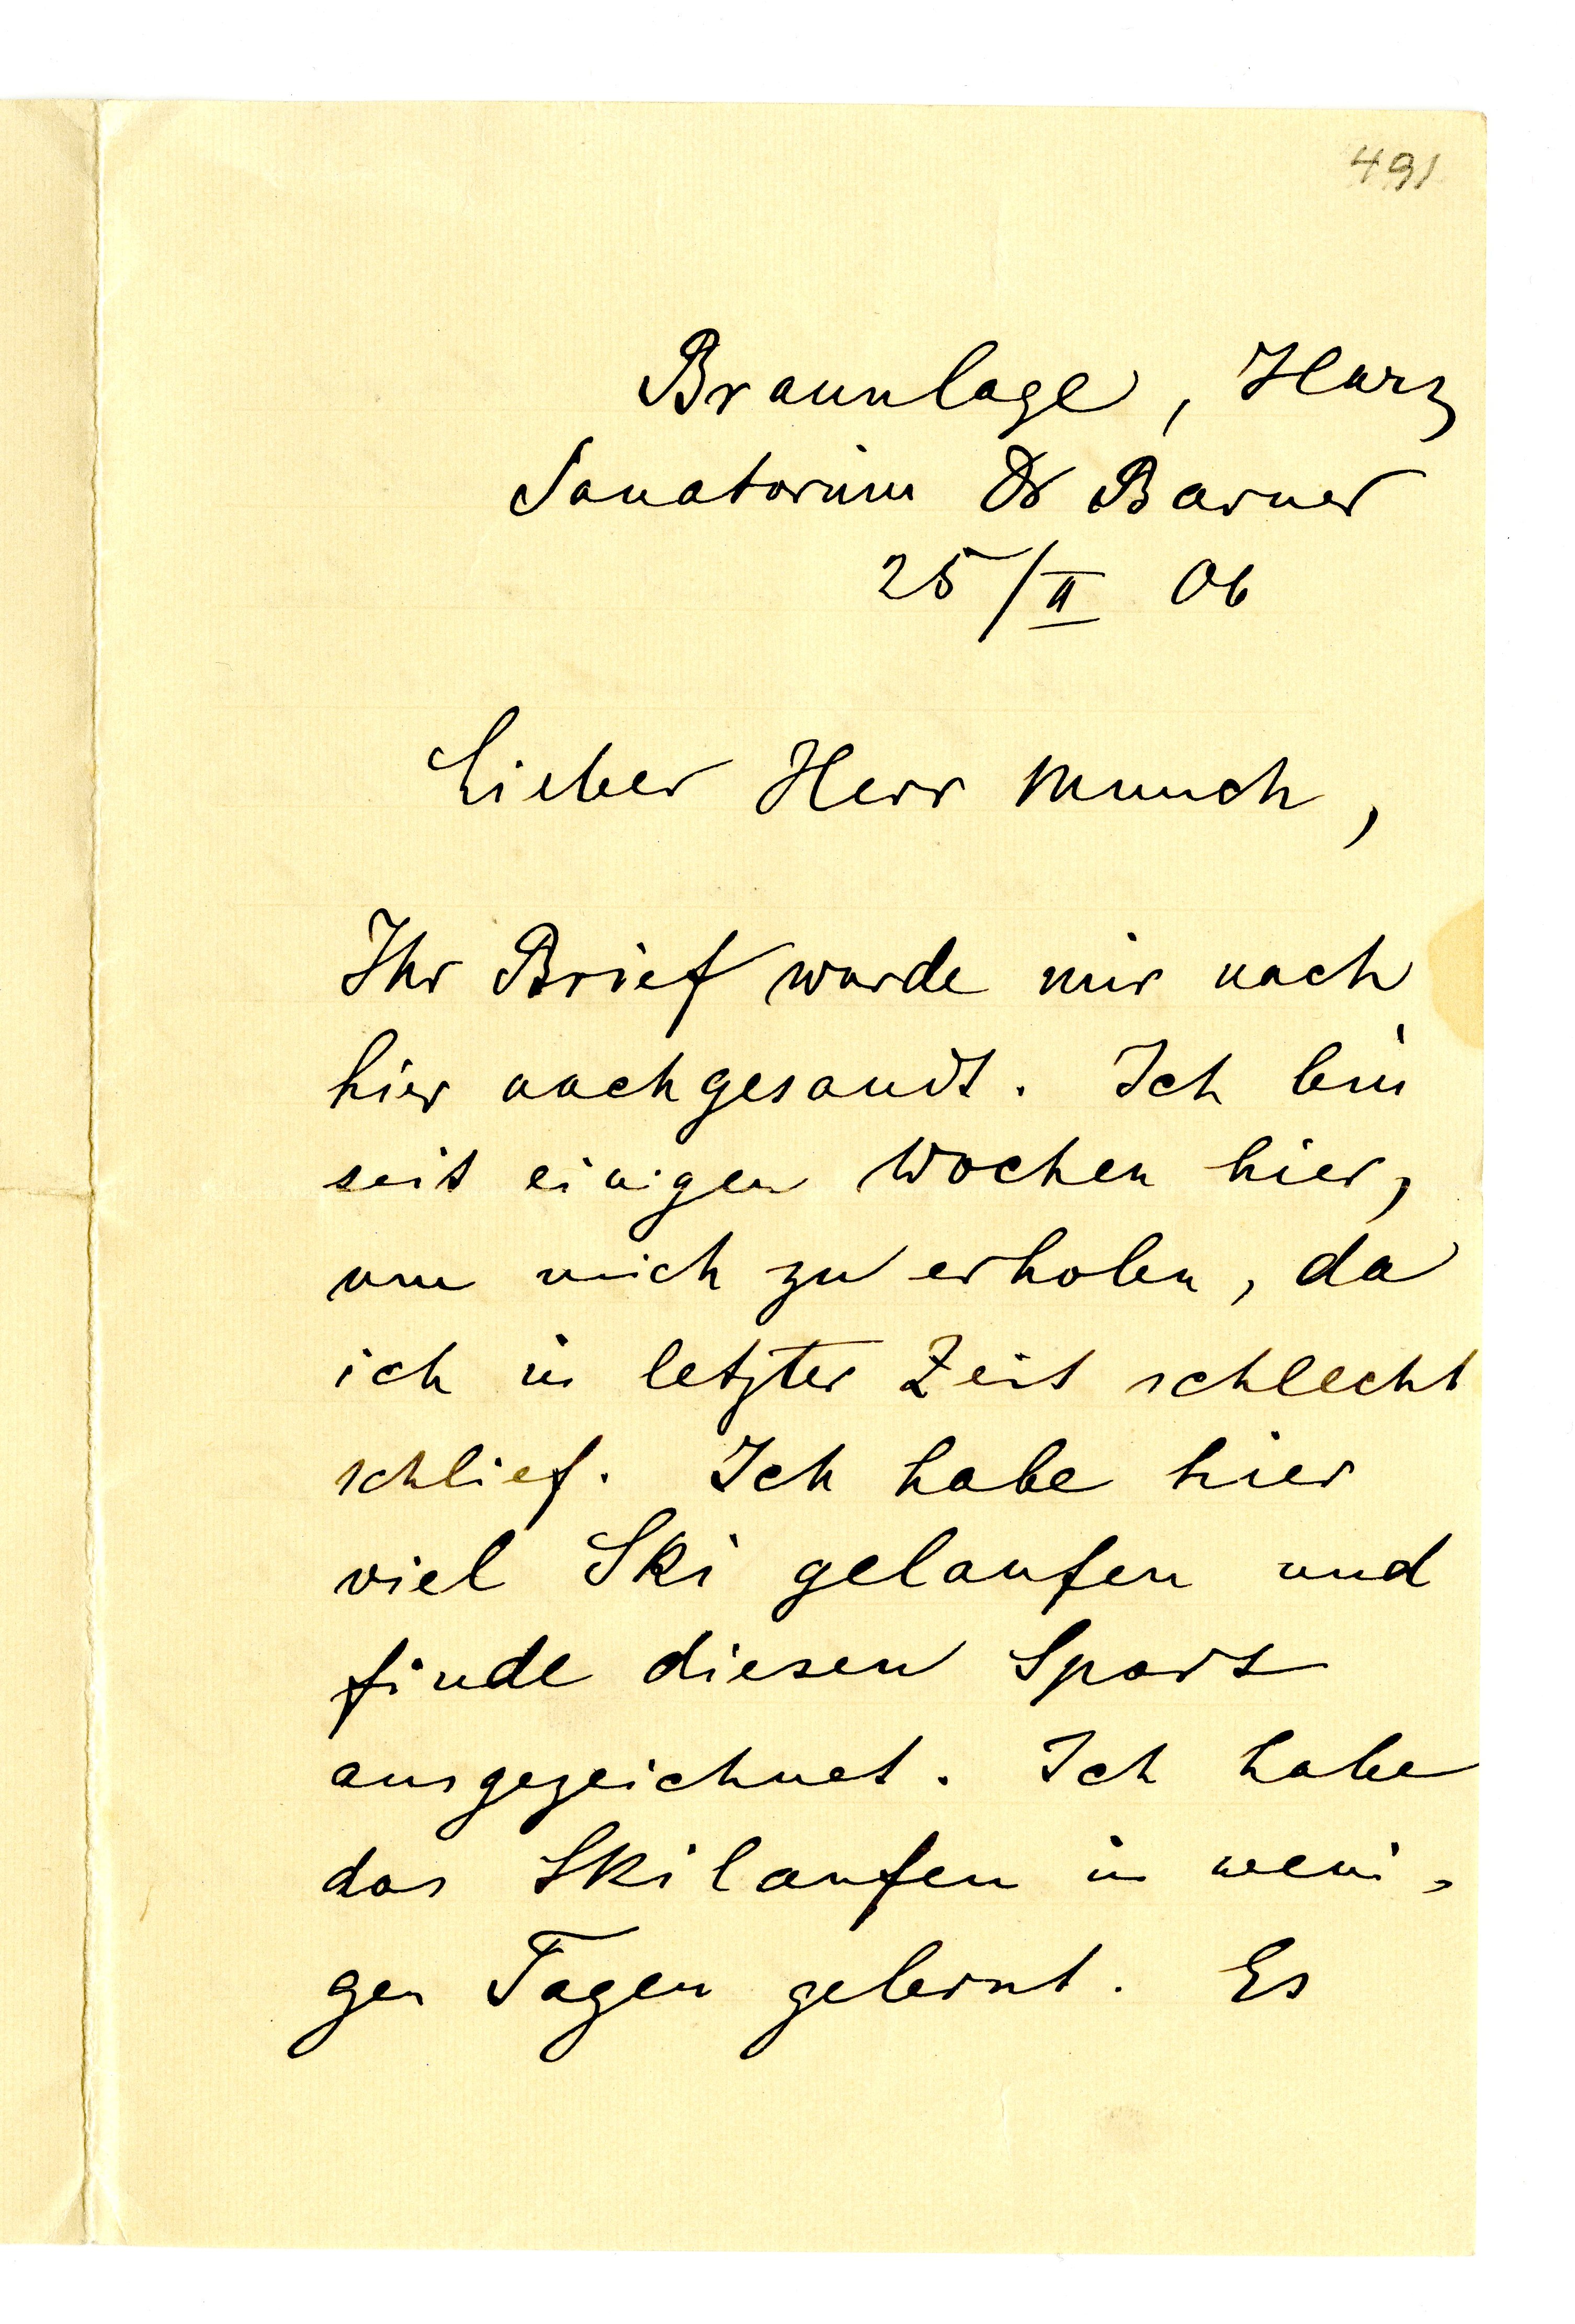 491
Braunlage, Harz
Sanatorium Dr Barner
25/II 06
Lieber Herr Munch,
Ihr Brief wurde mir nach
hier nachgesandt. Ich bin
seit einigen Wochen hier,
um mich zu erholen, da
ich in letzter Zeit schlecht
schlief. Ich habe hier
viel Ski gelaufen und
finde diesen Sport
ausgezeichnet. Ich habe
das Skilaufen in weni-
gen Tagen gelernt. Es